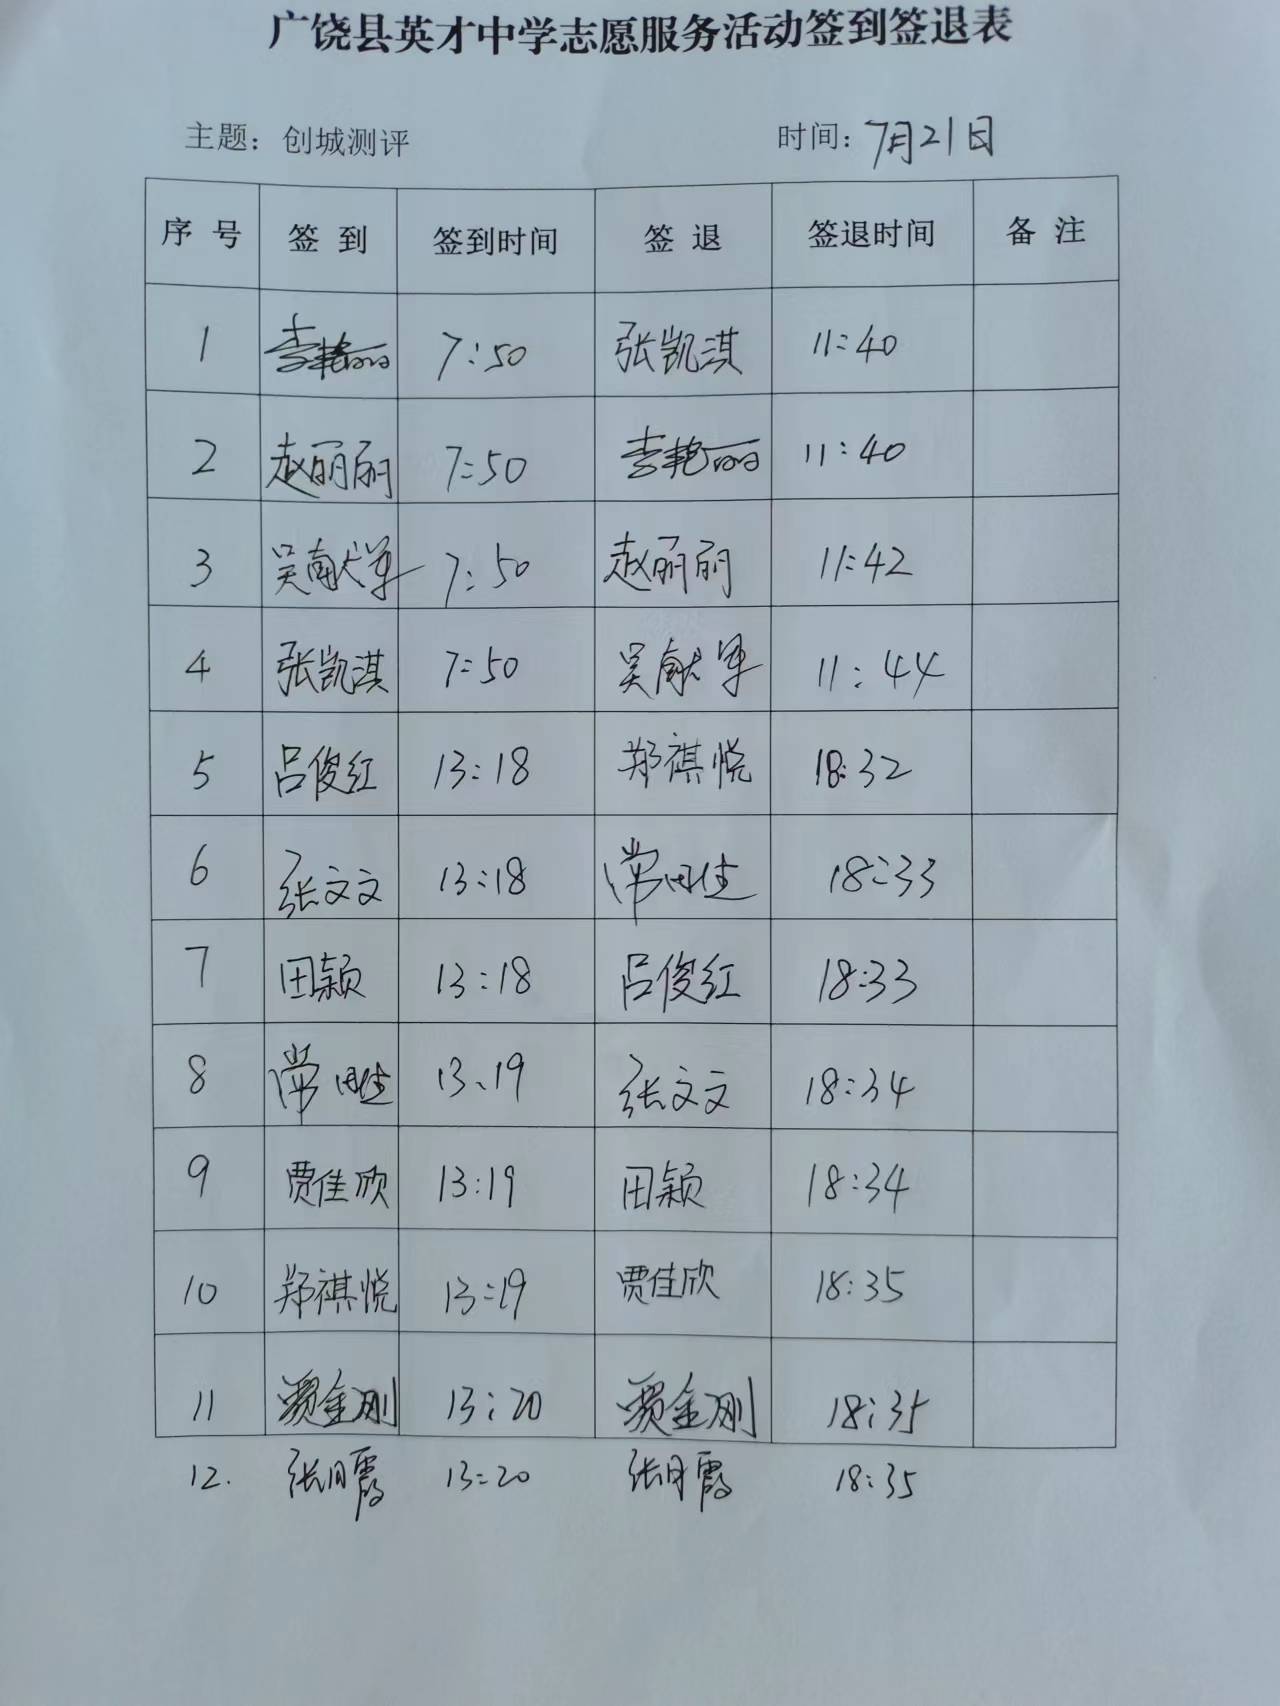 广饶县英才中学志愿服务活动签到签退表
主题：创城测评 时间：7月21日
序号 签到 签到时间 签退 签退时间 备注
1 李艳丽 7:50 张凯淇 11:40
2 赵丽丽 7:50 李艳丽 11:40
3 吴献军 7:50 赵丽丽 11:42
4 张凯淇 7:50 吴献军 11:44
5 吕俊红 13:18 郑祺悦 18:32
6 张文文 13:18 常 18:33
7 田颖 13:18 吕俊红 18:33
8 常 13、19 张文文 18:34
9 贾佳欣 13:19 田颖 18:34
10 郑祺悦 13:19 贾佳欣 18:35
11 贾金刚 13:20 贾金刚 18:35
12. 张月霞 13:20 张月霞 18:35